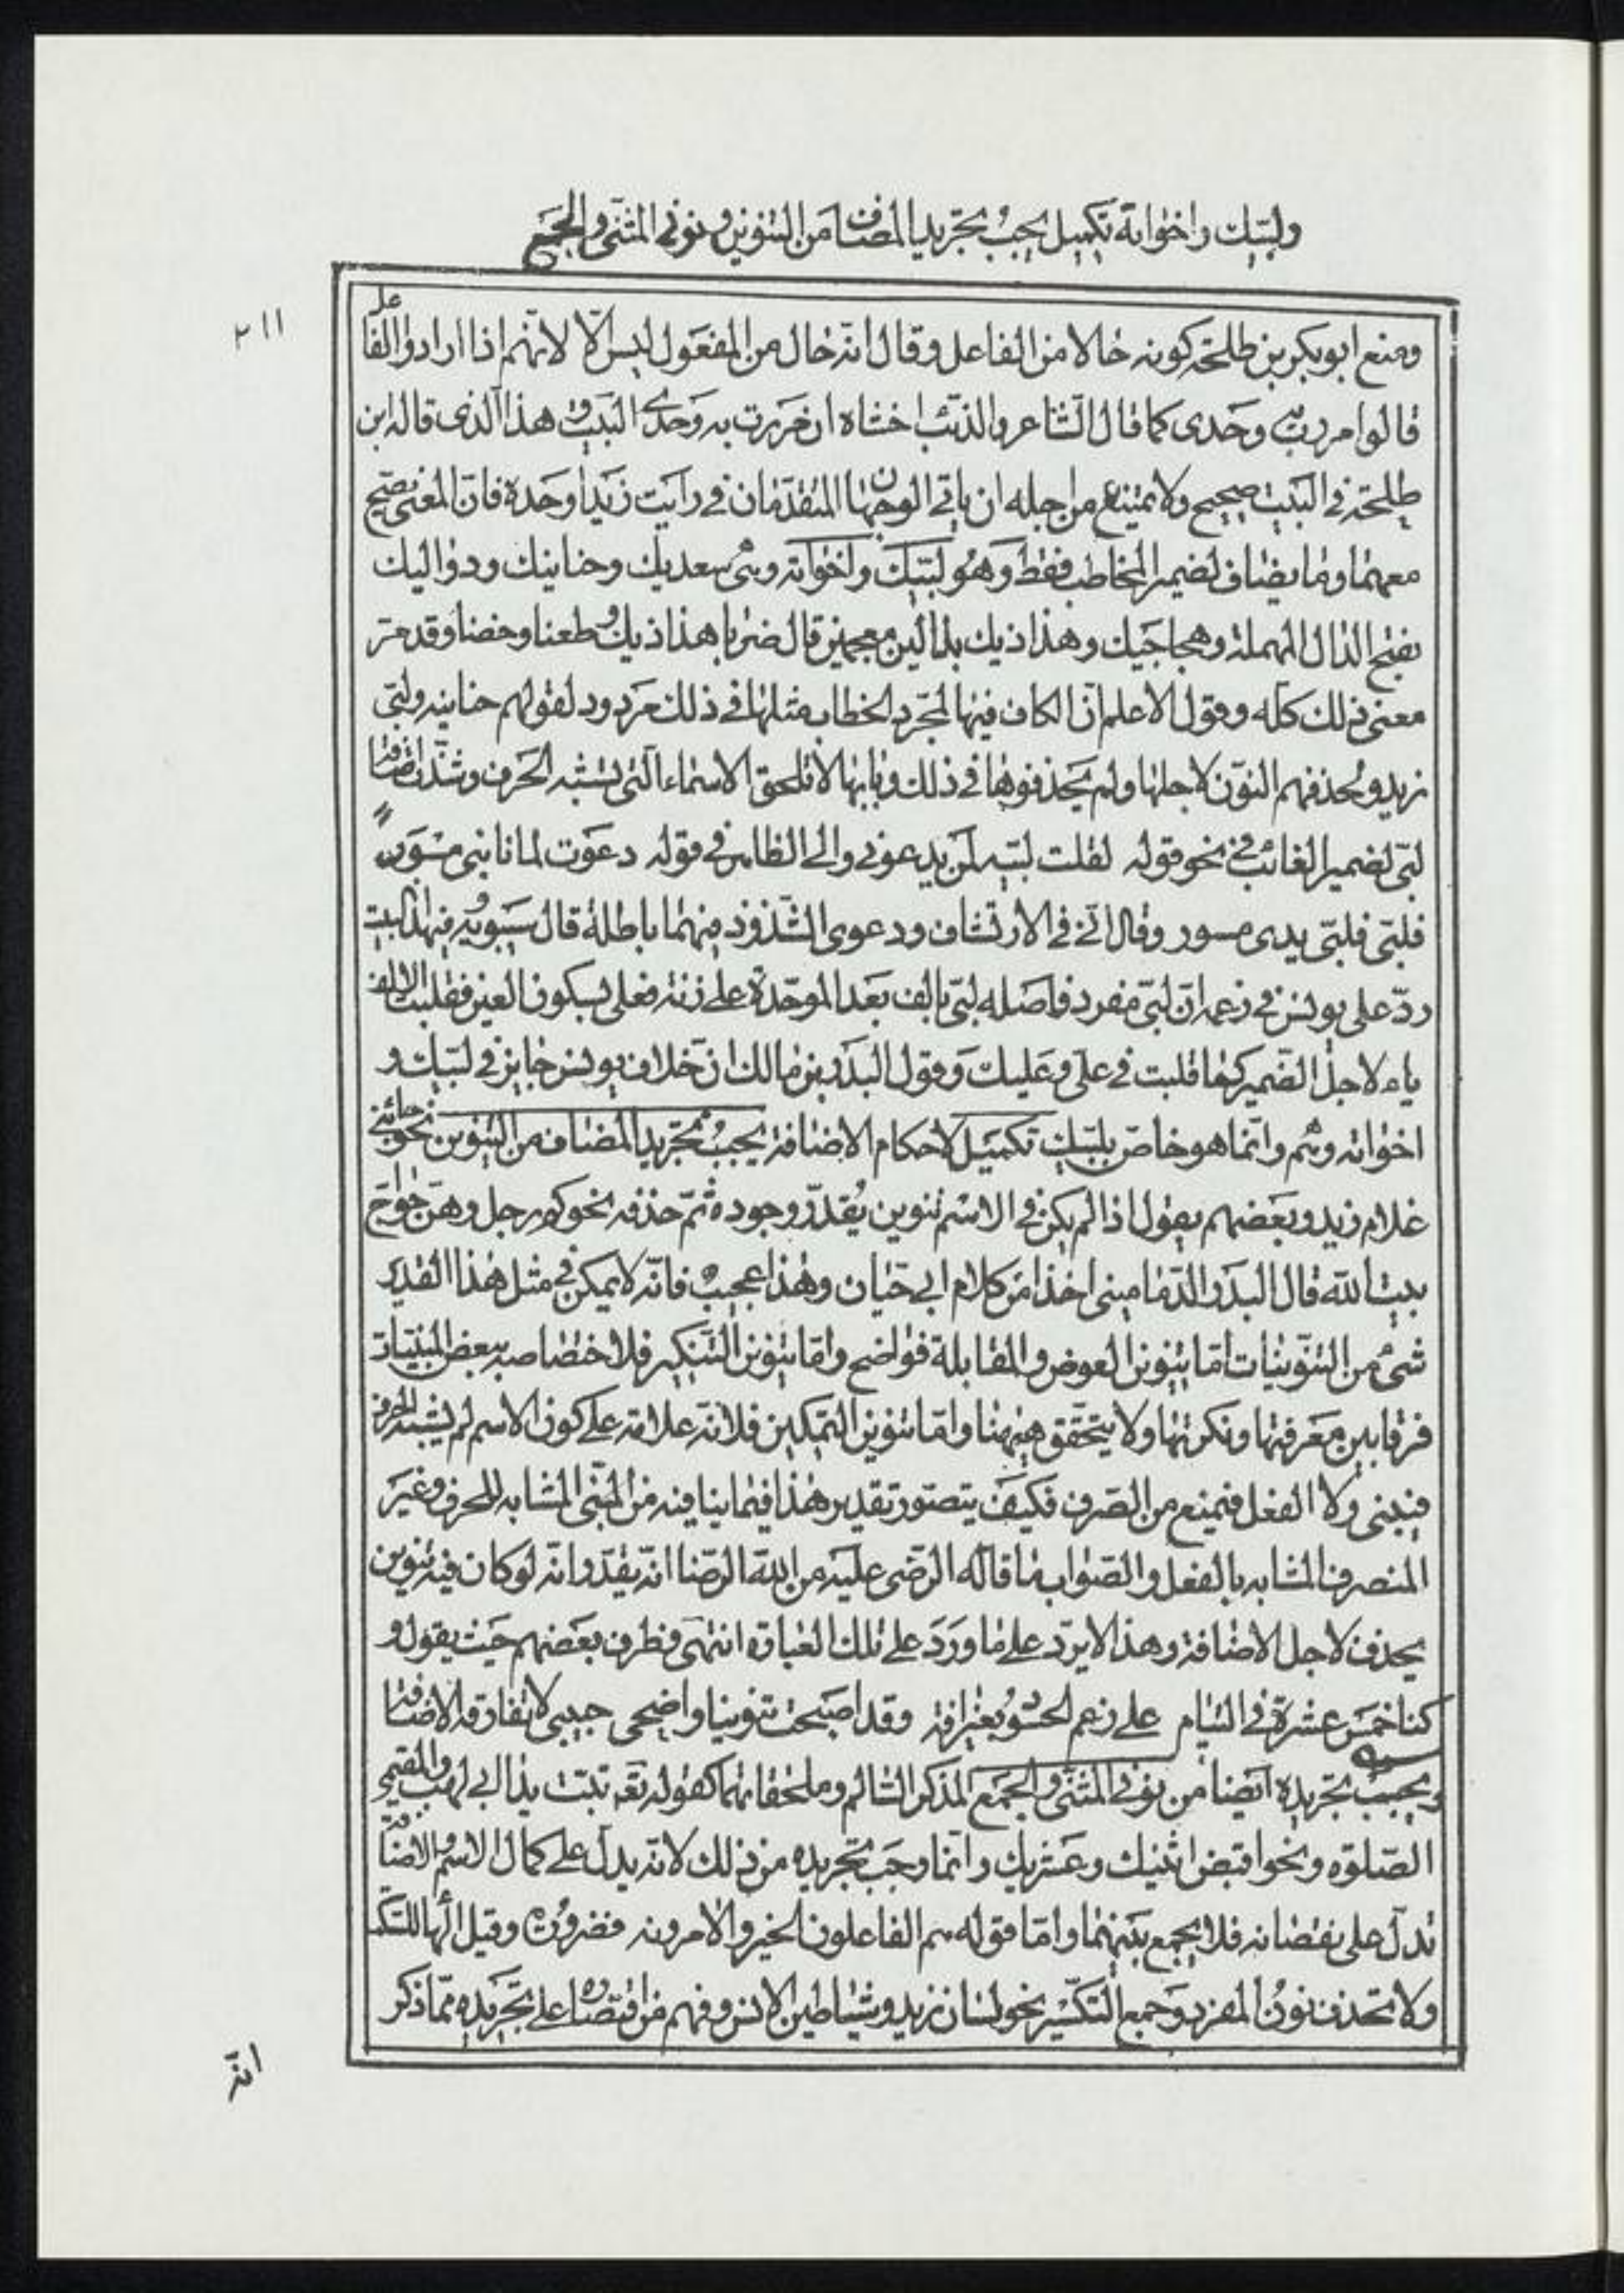 ولبيك واخواته تكميل يجب تجريد المضاف من التنوين ونوني المثنى والجمع
٢١١
ومنع ابو بكر بن طلحة كونه حالا من الفاعل وقال انه حال من المفعول ليس الا لانهم اذا ارادوا الفاعل
قالوا مررت به وحدى كما قال الشاعر والذئب اخشاه ان مررت به وحدى البيت وهذا الذى قاله ابن
طلحة فى البيت صحيح ولا يمتنع من اجله ان ياتى الوجهان المتقدمان فى رايت زيدا وحده فان المعنى يصح
معهما وما يضاف لضمير المخاطب فقط وهو لبيك واخواته وهى سعديك وحنانيك ودواليك
بفتح الدال المهملة وهجاجيك وهذاذيك بذالين معجمتين قال ضربا هذاذيك وطعنا وخضا وقد مر
معنى ذلك كله وقول الاعلم ان الكاف فيها لمجرد الخطاب مثلها فى ذلك مردود لقولهم حنانيه ولبى
زيد وبحذفهم النون لاجلها ولم يحذفوها فى ذلك وبانها لا تلحق الاسماء التى لا تشبه الحرف وشذت اضافة
لبى لضمير الغائب فى نحو قوله لقلت لبيه لمن يدعونى والى الظاهر فى قوله دعوت لما نابنى مسورا
فلبى فلبى يدى مسور وقال فى الارتشاف ودعوى الشذوذ فيهما باطلة قال سيبويه فى هذا البيت
رد على يونس فى زعمه ان لبى مفرد فاصله لبى بالف بعد الموحدة على زنة فعلى بسكون العين فقلبت الالف
ياء لاجل الضمير كما قلبت فى على وعليك وقول البدر بن مالك ان خلاف يونس جايز فى لبيك و
اخواته وهم وانما هو خاص بلبيك تكميل لاحكام الاضافة يجب تجريد المضاف من التنوين نحو جائنى
غلام زيد وبعضهم يقول اذا لم يكن فى الاسم تنوين يقدر وجوده ثم حذفه نحو كم رجل وهن حواج
بيت الله قال البدر الدمامينى اخذا من كلام ابى حيان وهذا عجيب فانه لا يمكن فى مثل هذا التقدير
شئ من التنوينات اما تنوين العوض والمقابلة فواضح واما تنوين التنكير فلاختصاصه ببعض المبنيات
فرقا بين معرفتها ونكرتها ولا يتحقق هيهنا واما تنوين التمكين فلانه علامة على كون الاسم لم يشبه الحرف
فيبنى ولا الفعل فيمنع من الصرف فكيف يتصور تقدير هذا فيما ينافيه من المبنى المشابه للحرف وغير
المنصرف المشابه بالفعل والصواب ما قاله الرضى عليه من الله الرضا انه يقدر انه لو كان فيه تنوين
يحذف لاجل الاضافة وهذا لا يرد على ما ورد على تلك العبارة انتهى وظرف بعضهم حيث يقول و
كنا خمس عشرة فى التيام على زعم الحسود بغير افة وقد اصبحت تنوينا واضحى حبيبى لا تفارقه الاضافة
ويجب تجريده ايضا من نونى المثنى والجمع المذكر السالم وملحقاتهما كقوله تعه تبت يدا ابى لهب والمقيمى
الصلوه ونحو اقبض اثنيك وعشريك وانما وجب تجريده من ذلك لانه يدل على كمال الاسم والاضافة
تدل على نقصانه فلا يجمع بينهما واما قوله هم الفاعلون الخير والامرونه فضرورة وقيل الهاء للسكت
ولا تحذف نون المفرد وجمع التكسير نحو لسان زيد وشياطين الانس وفهم من اقتصاره على تجريده مما ذكر
انه